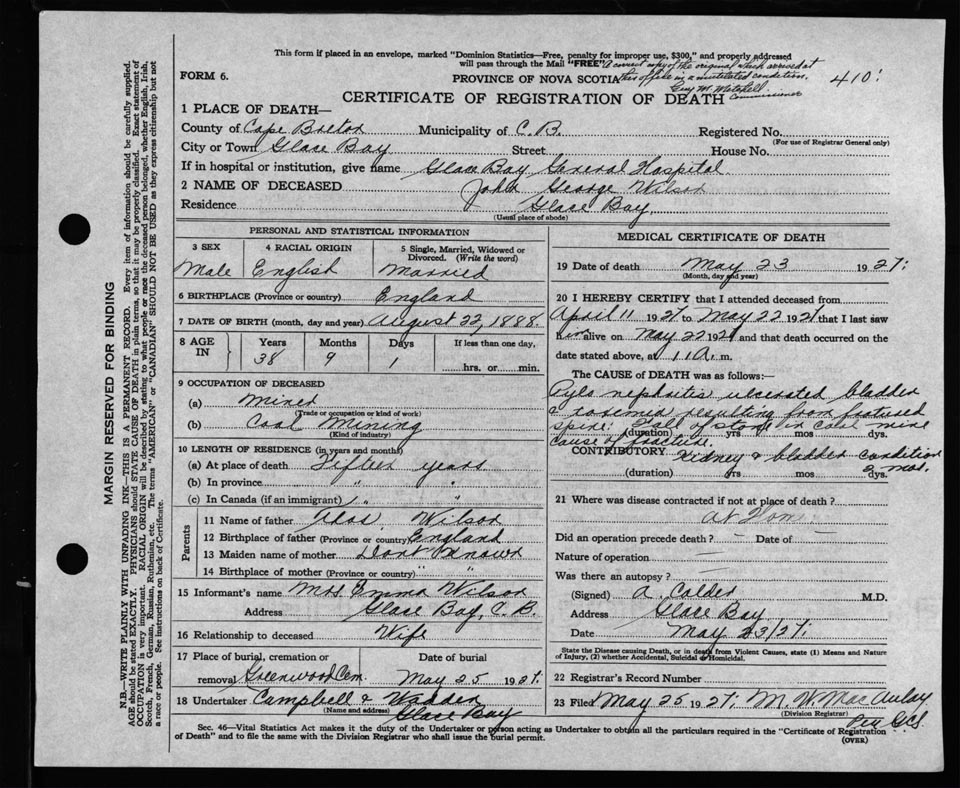 This form if placed in an envelope, marked "Dominion Statistics—Free, penalty for improper use, $300," and properly addressed
will pass through the Mail "FREE" A correct copy of the original which arrived at
FORM 6.
PROVINCE OF NOVA SCOTIA this office in a mutilated condition.
410
CERTIFICATE OF REGISTRATION OF DEATH Commissioner
1 PLACE OF DEATH—
County of Cape Breton Municipality of C.B. Registered No.
(For use of Registrar General only)
City or Town Glace Bay Street House No.
If in hospital or institution, give name Glace Bay General Hospital
2 NAME OF DECEASED John George Wilson
Residence Glace Bay
(Usual place of abode)
PERSONAL AND STATISTICAL INFORMATION
3 SEX 4 RACIAL ORIGIN 5 Single, Married, Widowed or
Divorced. (Write the word)
Male English Married
6 BIRTHPLACE (Province or country) England
7 DATE OF BIRTH (month, day and year) August 22, 1888.
8 AGE IN Years Months Days If less than one day,
38 9 1 hrs. or min.
9 OCCUPATION OF DECEASED
(a) Miner
(Trade or occupation or kind of work)
(b) Coal Mining
(Kind of industry)
10 LENGTH OF RESIDENCE (in years and months)
(a) At place of death Fifteen years
(b) In province " "
(c) In Canada (if an immigrant) " "
Parents
11 Name of father Thos. Wilson
12 Birthplace of father (Province or country) England
13 Maiden name of mother Dont Known
14 Birthplace of mother (Province or country) " "
15 Informant's name Mrs Emma Wilson
Address Glace Bay, C.B.
16 Relationship to deceased Wife
17 Place of burial, cremation or Date of burial
removal Greenwood Cem. May 25 1927.
18 Undertaker Campbell &
(Name and address) Glace Bay
MEDICAL CERTIFICATE OF DEATH
19 Date of death May 23 1927.
(Month, day and year)
20 I HEREBY CERTIFY that I attended deceased from
April 11 1927 to May 22 1927 that I last saw
him alive on May 22 1927 and that death occurred on the
date stated above, at 11 A. m.
The CAUSE of DEATH was as follows:—
Pylo nephritis ulcerated bladder
resulting from fractured
spine. Fall of stone in coal mine
(duration) yrs mos dys.
cause of fracture.
CONTRIBUTORY Kidney & bladder condition
(duration) yrs mos dys.
2 mos.
21 Where was disease contracted if not at place of death?
Did an operation precede death? — Date of —
Nature of operation —
Was there an autopsy? —
(Signed) A. Calder M.D.
Address Glace Bay
Date May 23/27.
State the Disease causing Death, or in death from Violent Causes, state (1) Means and Nature
of Injury, (2) whether Accidental, Suicidal or Homicidal.
22 Registrar's Record Number
23 Filed May 25 1927. M. W. MacAulay
(Division Registrar)
Per G.C.S.
Sec. 46—Vital Statistics Act makes it the duty of the Undertaker or person acting as Undertaker to obtain all the particulars required in the "Certificate of Registration
of Death" and to file the same with the Division Registrar who shall issue the burial permit.
(OVER)
MARGIN RESERVED FOR BINDING
N.B.—WRITE PLAINLY WITH UNFADING INK—THIS IS A PERMANENT RECORD. Every item of information should be carefully supplied.
AGE should be stated EXACTLY. PHYSICIANS should STATE CAUSE OF DEATH in plain terms, so that it may be properly classified. Exact statement of
OCCUPATION is very important. RACIAL ORIGIN will be described by stating to what people or race the deceased person belonged, whether English, Irish,
Scotch, French, German, Russian, Ruthenian, etc. The terms "AMERICAN" or "CANADIAN" SHOULD NOT BE USED as they express citizenship but not
a race or people. See instructions on back of Certificate.